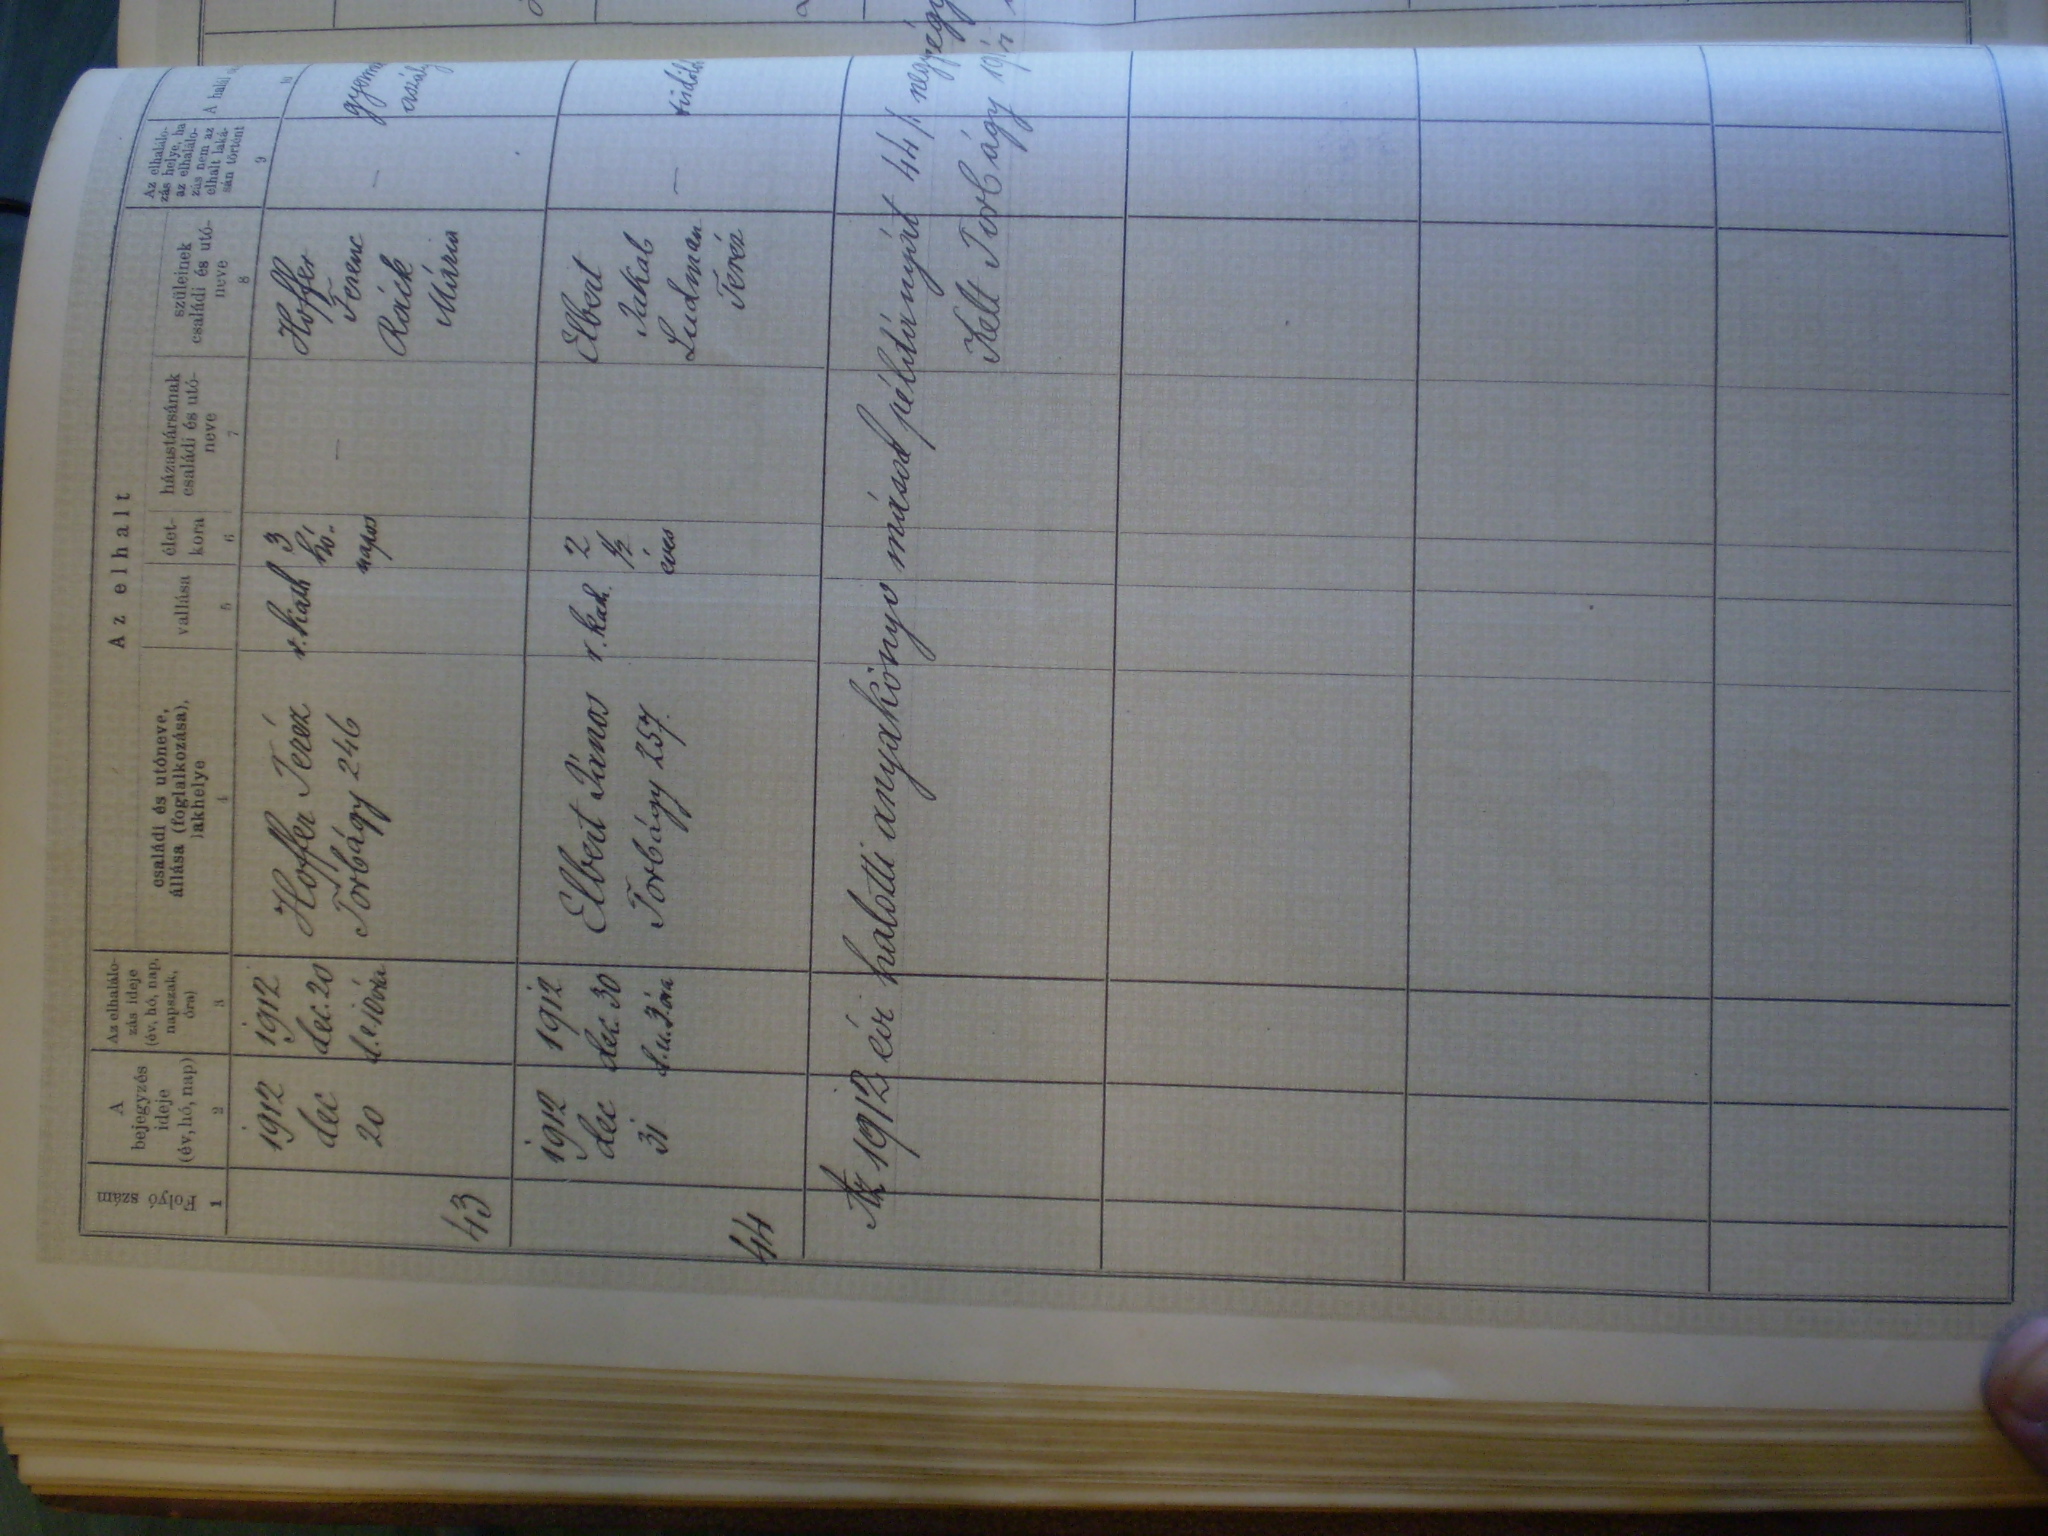 Az elhalt
Folyó szám
A bejegyzés ideje (év, hó, nap)
Az elhalálo-
zás ideje
(év, hó, nap,
napszak,
óra)
családi és utóneve,
állása (foglalkozása),
lakhelye
vallása
élet-
kora
házastársának
családi és utó-
neve
szüleinek
családi és utó-
neve
Az elhalálo-
zás helye, ha
az elhalálo-
zás nem az
elhalt laká-
sán történt
A halál
1
2
3
4
5
6
7
8
9
10
43
1912
dec
20
1912
dec. 20
d.e. 10 óra
Hoffer Teréz
Torbágy 246
r. kath
3
hó-
napos
—
Hoffer
Ferenc
Ráck
Mária
—
44
1912
dec
31
1912
dec. 30
d.u. 3 óra
Elbert János
Torbágy 257.
r. kath.
2
½
éves
Elbert
Jakab
Ludman
Teréz
—
Az 1912 évi halotti anyakönyv másod példányát 44 /.
Kelt Torbágy